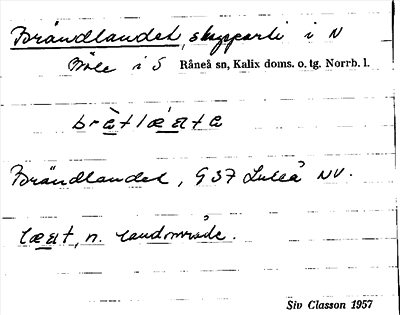 Brändlandet, skogparti i N
Böle i S Råneå sn, Kalix doms. o. tg. Norrb. l.
brätlæata
Brändlandet, G37 Luleå NV.
læat, n. landområde.
Siv Classon 1957